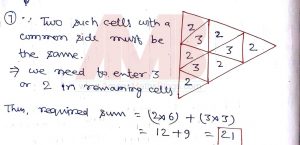 ⑦ ∵ Two such cells with a
common side must be
the same.
⇒ we need to enter 3
or 2 in remaining cells
Thus, required sum = (2×6) + (3×3)
= 12+9 = 21
2
3 2
2 3 2
3
2 2